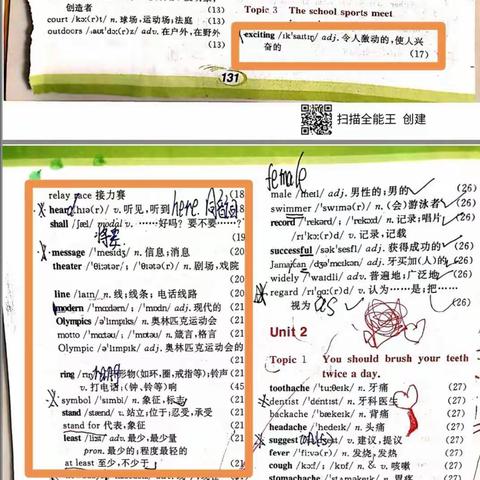 创造者 (13)
court /kɔː(r)t/ n. 球场;运动场;法庭 (13)
outdoors /ˌaʊt'dɔː(r)z/ adv. 在户外,在野外
(13)
Topic 3 The school sports meet
exciting /ɪk'saɪtɪŋ/ adj. 令人激动的,使人兴
奋的 (17)
131
扫描全能王 创建
relay race 接力赛 (18
hear /hɪə(r)/ v. 听见,听到 here. (18
shall /ʃæl/ modal v. ……好吗?要不要……?
(19
message /'mesɪdʒ/ n. 信息;消息 (20
theater /'θiːətər/; /'θɪətə(r)/ n. 剧场,戏院
(20
line /laɪn/ n. 线;线条;电话线路 (20
modern /'mɒdərn/; /'mɒdn/ adj. 现代的 (21
Olympics /ə'lɪmpɪks/ n. 奥林匹克运动会 (21
motto /'mɑːtəʊ/; /'mɒtəʊ/ n. 箴言;格言 (21
Olympic /ə'lɪmpɪk/ adj. 奥林匹克运动会的
(21
ring /rɪŋ/ n. 形物(如环,圈,戒指等);铃声
v. 打电话;(钟、铃等)响 (45
symbol /'sɪmbl/ n. 象征,标志 (21
stand /stænd/ v. 站立;位于;忍受,承受 (21
stand for 代表,象征 (21
least /liːst/ adv. 最少,最少量
pron. 最少的;程度最轻的
at least 至少,不少于 (21
female
male /meɪl/ adj. 男性的;男的 (26)
swimmer /'swɪmə(r)/ n. (会)游泳者 (26)
record /'rekərd/, /'rekɔːd/ n. 记录;唱片
/rɪ'kɔː(r)d/ v. 记录,记载
successful /sək'sesfl/ adj. 获得成功的 (26)
Jamaican /dʒə'meɪkən/ adj. 牙买加(人)的 (26)
widely /'waɪdli/ adv. 普遍地;广泛地 (26)
regard /rɪ'gɑː(r)d/ v. 认为……是;把……
视为 as (26)
Unit 2
Topic 1 You should brush your teeth
twice a day.
toothache /'tuːθeɪk/ n. 牙痛 (27)
dentist /'dentɪst/ n. 牙科医生 (27)
backache /'bækeɪk/ n. 背痛 (27)
headache /'hedeɪk/ n. 头痛 (27)
suggest v. 建议,提议 (27)
fever /'fiːvə(r)/ n. 发烧,发热 (27)
cough /kɔːf/; /kɒf/ n. & v. 咳嗽 (27)
stomachache /'stʌməkeɪk/ n. 胃疼 (27)